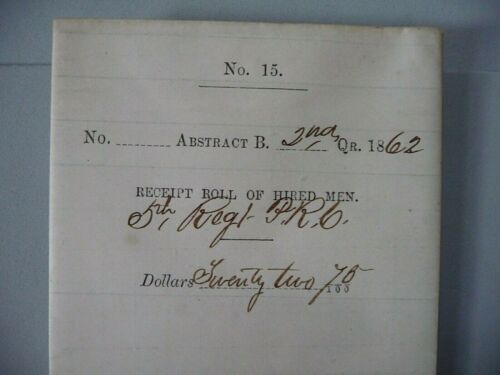 No. 15.
No. ........ Abstract B. 2nd Qr. 1862
RECEIPT ROLL OF HIRED MEN.
5th, Regt P.R.C.
Dollars Twenty two 75/100